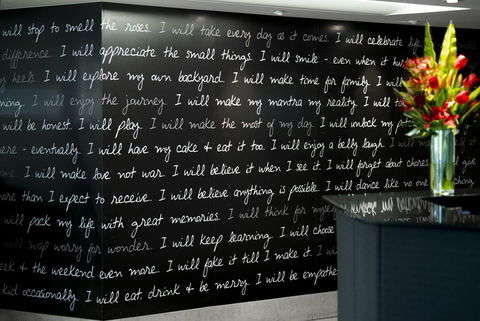 will stop to smell the roses. I will take every day as it comes. I will celebrate life
difference. I will appreciate the small things. I will smile - even when it hur
my heels. I will explore my own backyard. I will make time for family. I will
ning. I will enjoy the journey. I will make my mantra my reality. I will to
will be honest. I will play. I will make the most of my day. I will unlock my po
ere - eventually. I will have my cake & eat it too. I will enjoy a belly laugh. I will
me. I will make love not war. I will believe it when I see it. I will forget about chores. I will give
more than I expect to receive. I will believe anything is possible. I will dance like no one
will pack my life with great memories. I will think for myse
will swap worry for wonder. I will keep learning. I will choose
eek & the weekend even more. I will fake it till I make it. I wil
kid occasionally. I will eat drink & be merry. I will be empathe